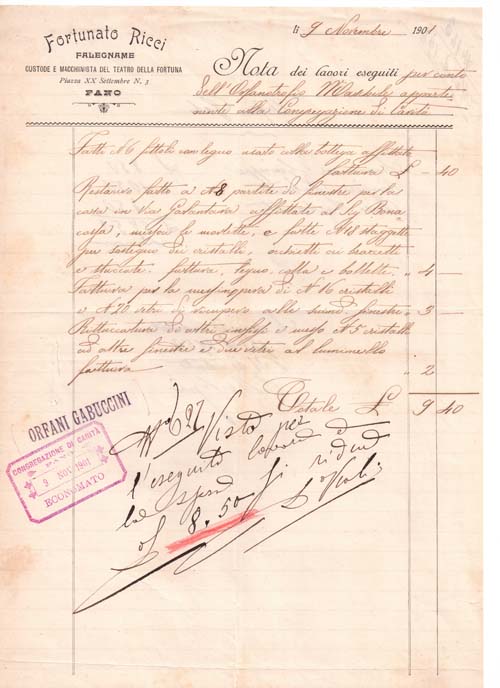 Fortunato Ricci
FALEGNAME
CUSTODE E MACCHINISTA DEL TEATRO DELLA FORTUNA
Piazza XX Settembre N. 3
FANO
li 9 Novembre 1901
Nota dei lavori eseguiti per conto
dell'Orfanotrofio Maschile apparte-
nente alla Congregazione di Carità
Fatti N 6 con legno usato alla bottega affittata
fattura £ - 40
Restauro fatto a N 8 partite di finestre per la
casa in Via Galantara affittata al Sig Bona
le e fatte N 18 staggette
per sostegno dei cristalli,
e stuccate. fattura, legno, colla e bollette. " 4 -
Fattura per la di N 16 cristalli
e N 20 vetri di recupero alle sudd. finestre " 3 -
di altri e messo N 5 cristalli
ad altre finestre e due vetri al
fattura " 2
Totale £ 9 40
ORFANI GABUCCINI
CONGREGAZIONE DI CARITÀ
FANO
9 NOV 1901
ECONOMATO
N 627 Visto per
l'eseguito lavoro e
la si riduce
a £ 8.50